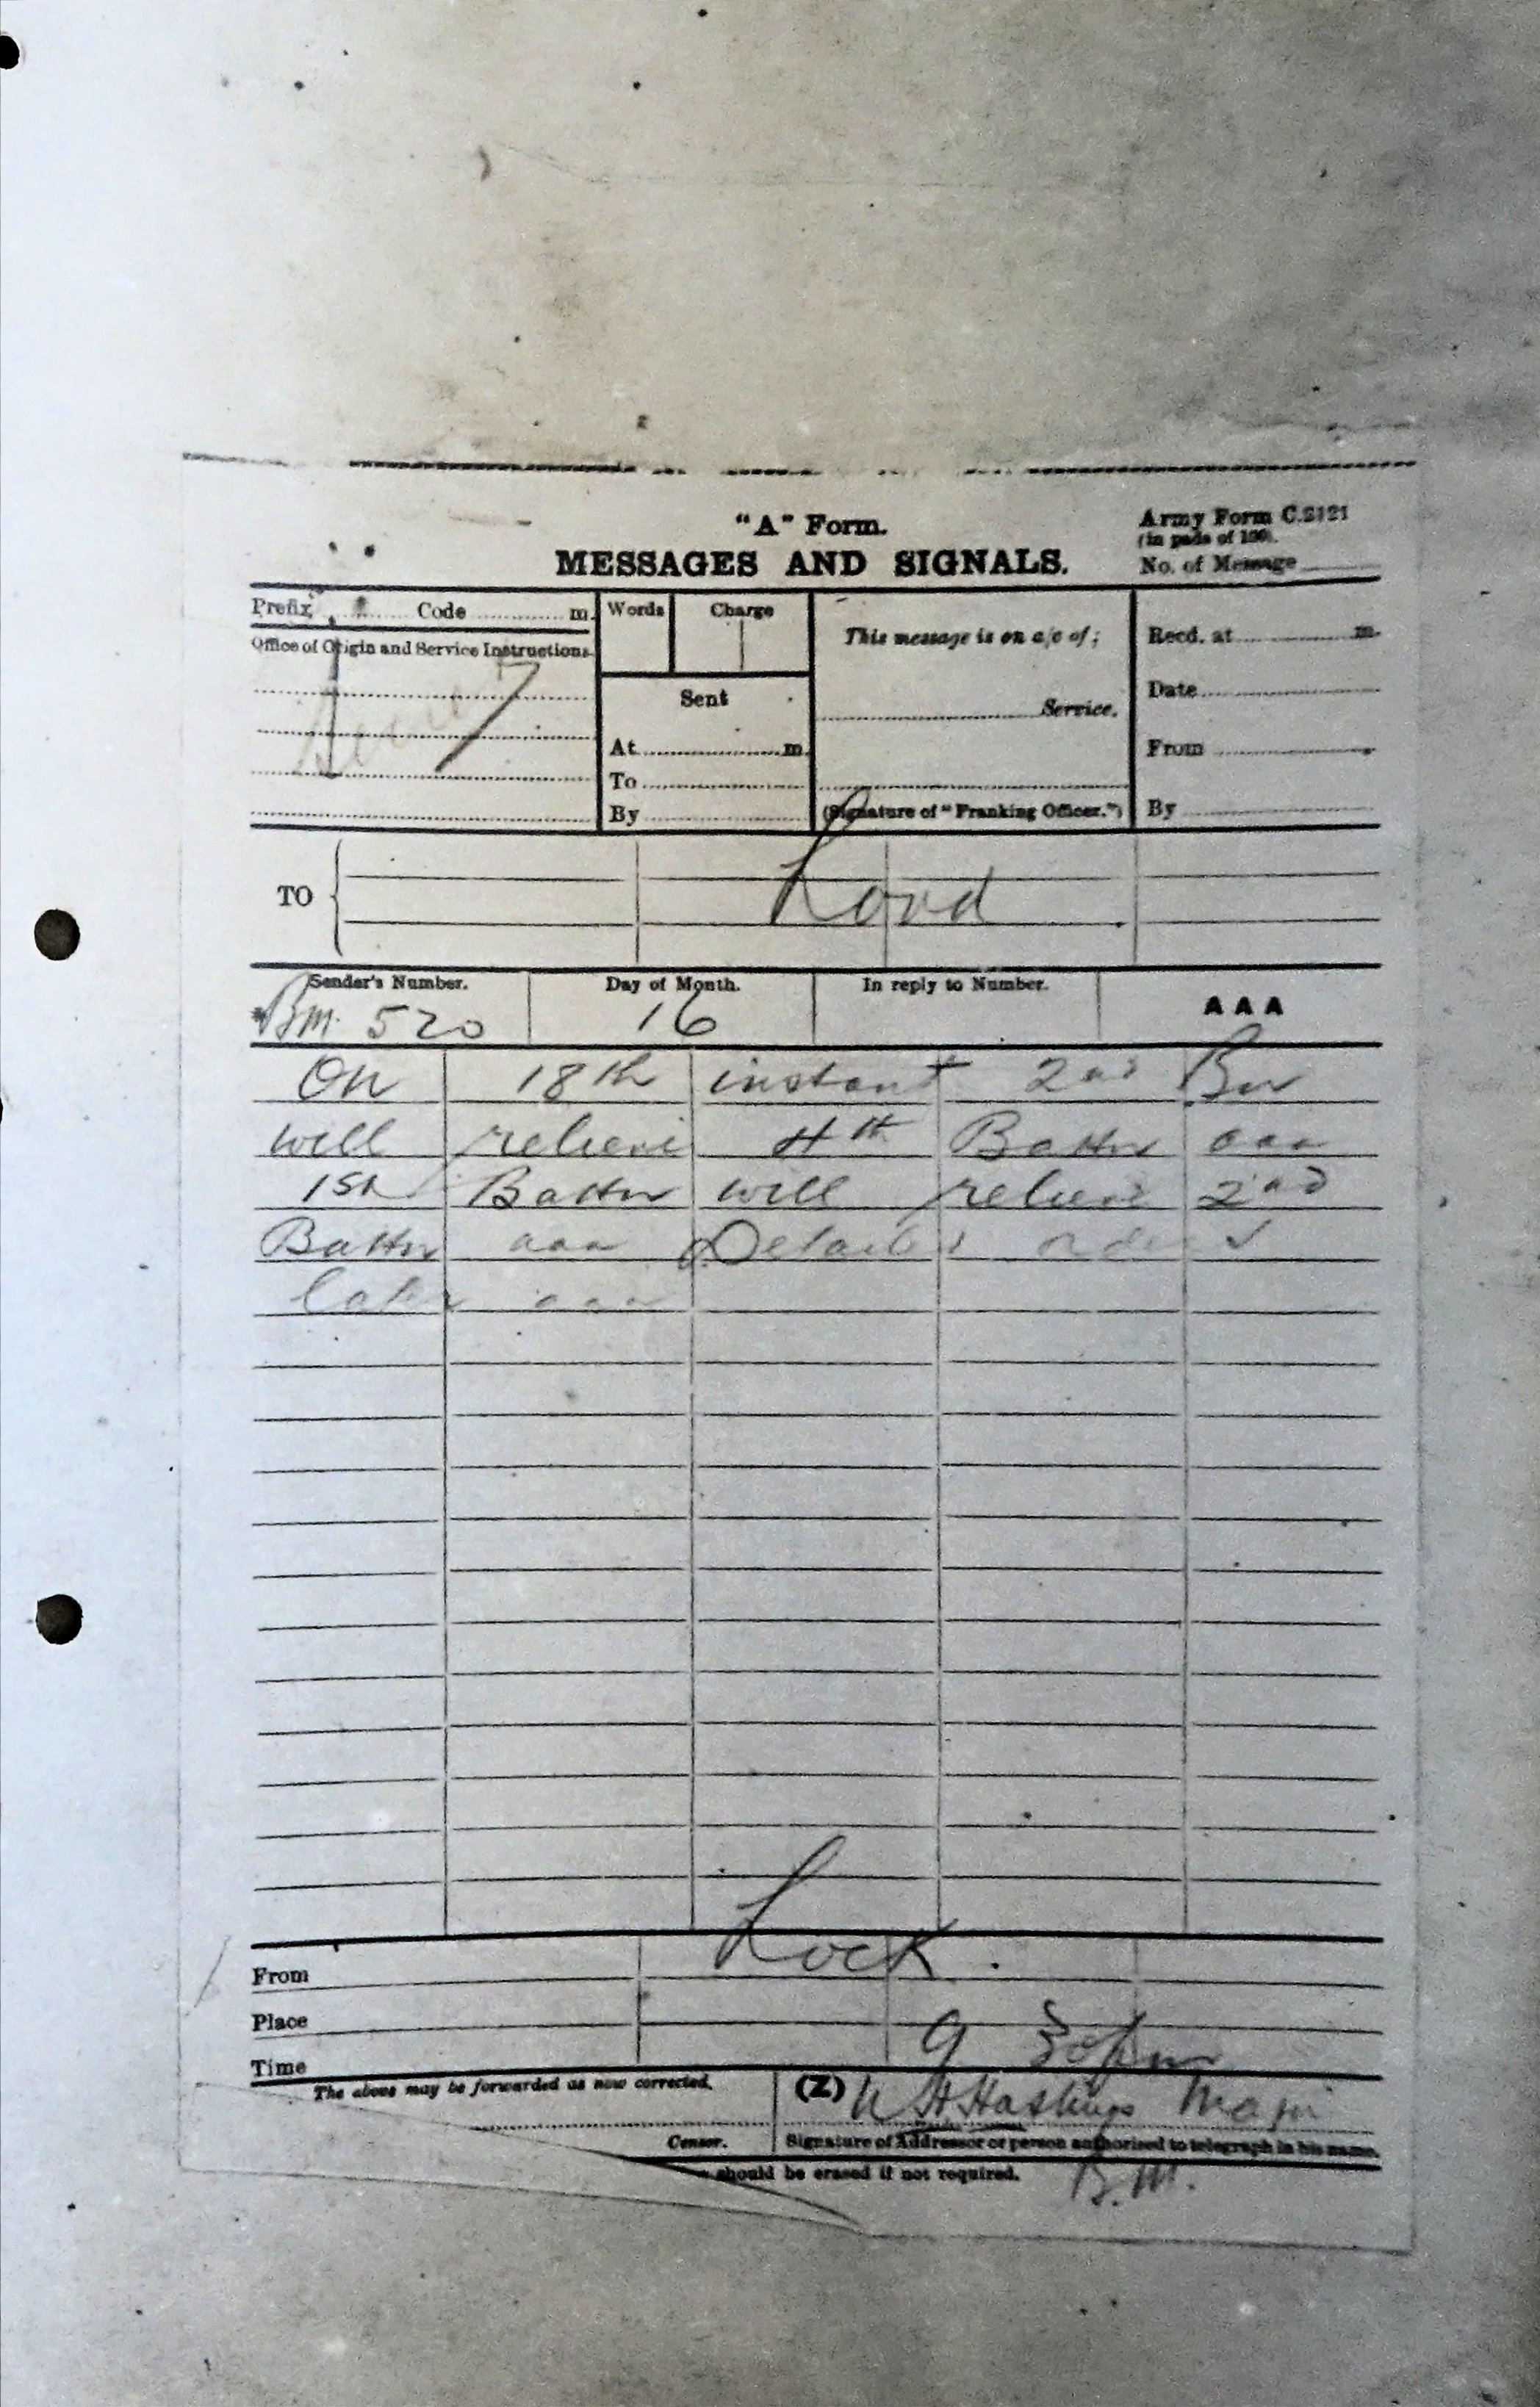 "A" Form.
Army Form C.2121
(in pads of 100).
MESSAGES AND SIGNALS.
No. of Message
Prefix Code m.
Words Charge
This message is on a/c of:
Recd. at m.
Office of Origin and Service Instructions
Sent
Service.
Date
At m.
From
To
By
(Signature of "Franking Officer.")
By
TO
Lord
Sender's Number.
Day of Month.
In reply to Number.
AAA
BM. 520
16
On 18th instant 2nd Bn
will relieve 4th Battn aaa
1st Battn will relieve 2nd
Battn aaa Detailed orders
later aaa
From
Lock.
Place
Time
9 30 pm
The above may be forwarded as now corrected.
(Z) W H Hastings Major
Censor.
Signature of Addressor or person authorised to telegraph in his name.
should be erased if not required.
B.M.